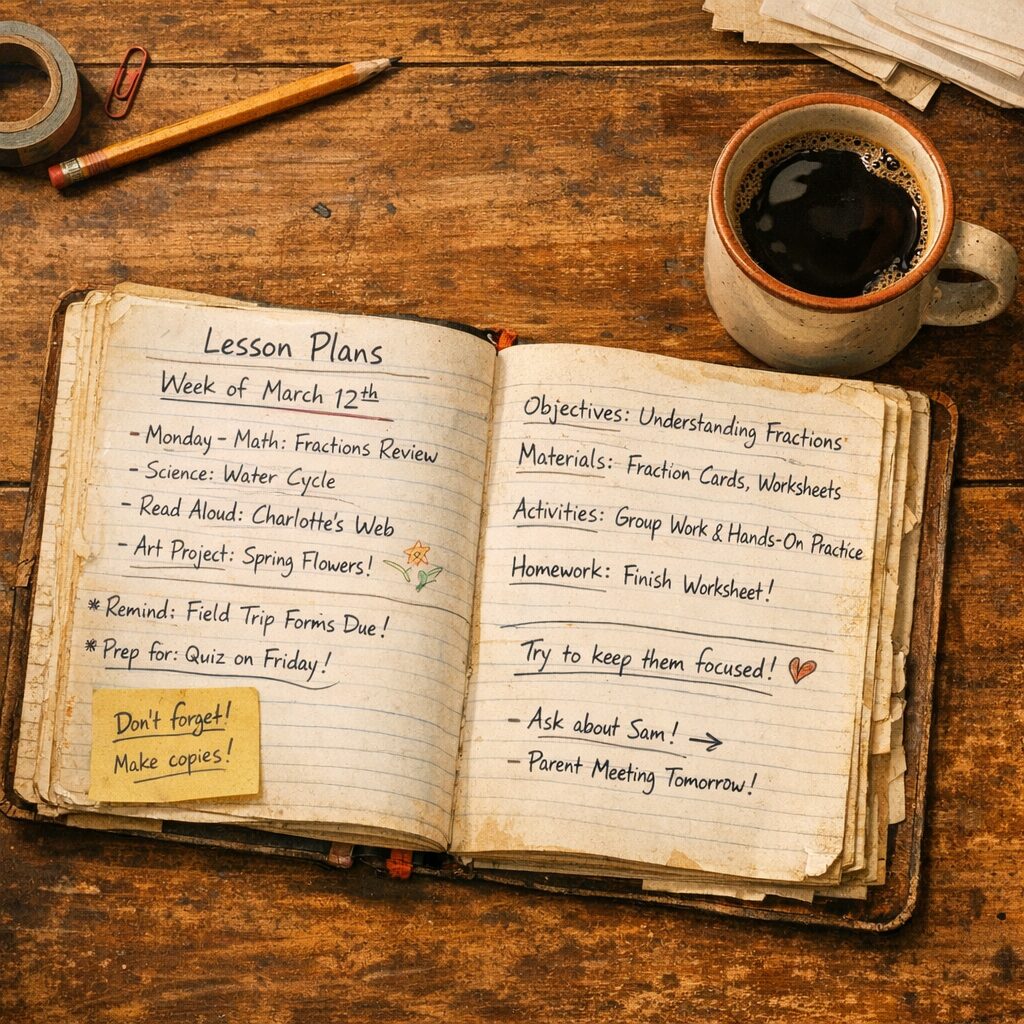 Lesson Plans
Week of March 12th
- Monday - Math: Fractions Review
- Science: Water Cycle
- Read Aloud: Charlotte's Web
- Art Project: Spring Flowers!
* Remind: Field Trip Forms Due!
* Prep for: Quiz on Friday!
Don't forget!
Make copies!
Objectives: Understanding Fractions
Materials: Fraction Cards, Worksheets
Activities: Group Work & Hands-On Practice
Homework: Finish Worksheet!
Try to keep them focused!
- Ask about Sam! →
- Parent Meeting Tomorrow!